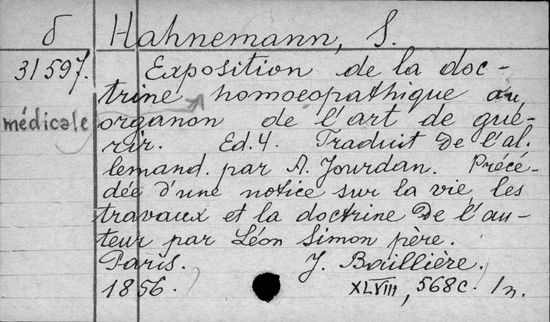 δ Hahnemann, S.
31597. Exposition de la doc-
trine homoeopathique ou
médicale organon de l'art de gué-
rir. Ed. 4. Traduit de l'al.
lemand. par A. Jourdan. Précé-
dée d'une notice sur la vie, les
travaux et la doctrine de l'au-
teur par Léon Simon père.
Paris. J. Baillière.
1856. XLVIII, 568c. In.